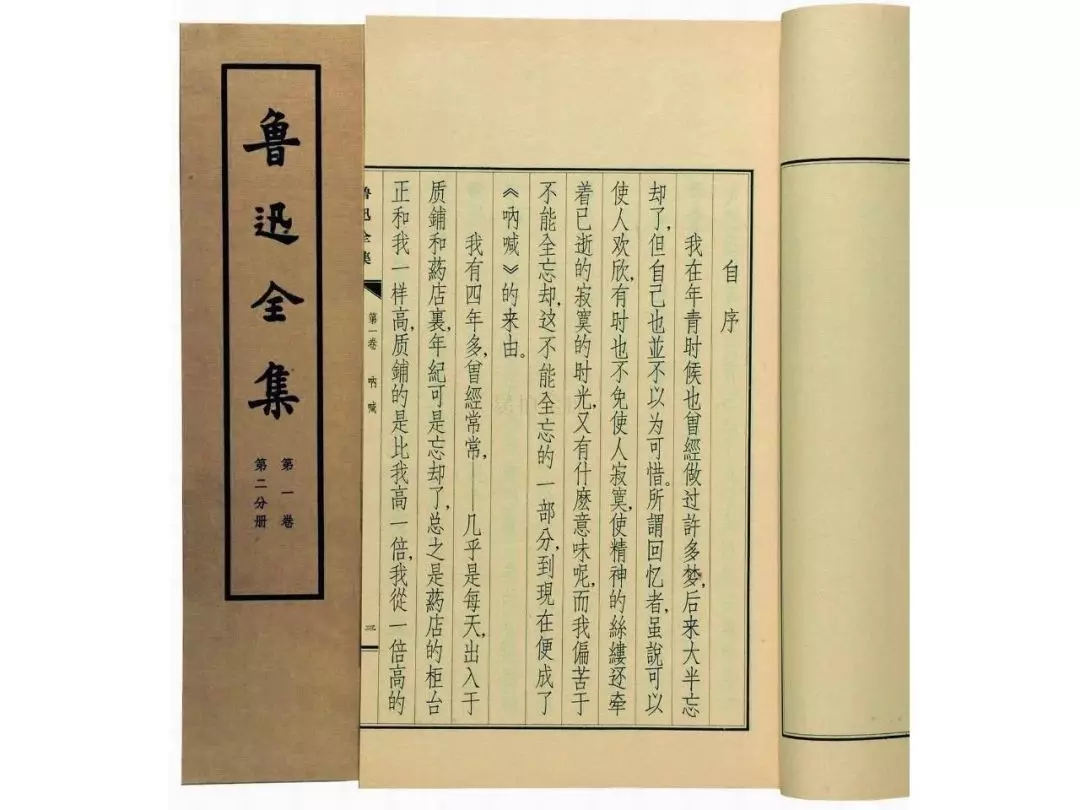 鲁迅全集
第一卷
第二分册
自序
我在年青时候也曾經做过許多梦,后来大半忘
却了,但自己也並不以为可惜。所謂回忆者,虽說可以
使人欢欣,有时也不免使人寂寞,使精神的絲縷还牵
着已逝的寂寞的时光,又有什麽意味呢,而我偏苦于
不能全忘却,这不能全忘的一部分,到現在便成了
《吶喊》的来由。
我有四年多,曾經常常,——几乎是每天,出入于
质鋪和葯店裏,年紀可是忘却了,总之是葯店的柜台
正和我一样高,质鋪的是比我高一倍,我從一倍高的
鲁迅全集 第一卷 吶喊 三